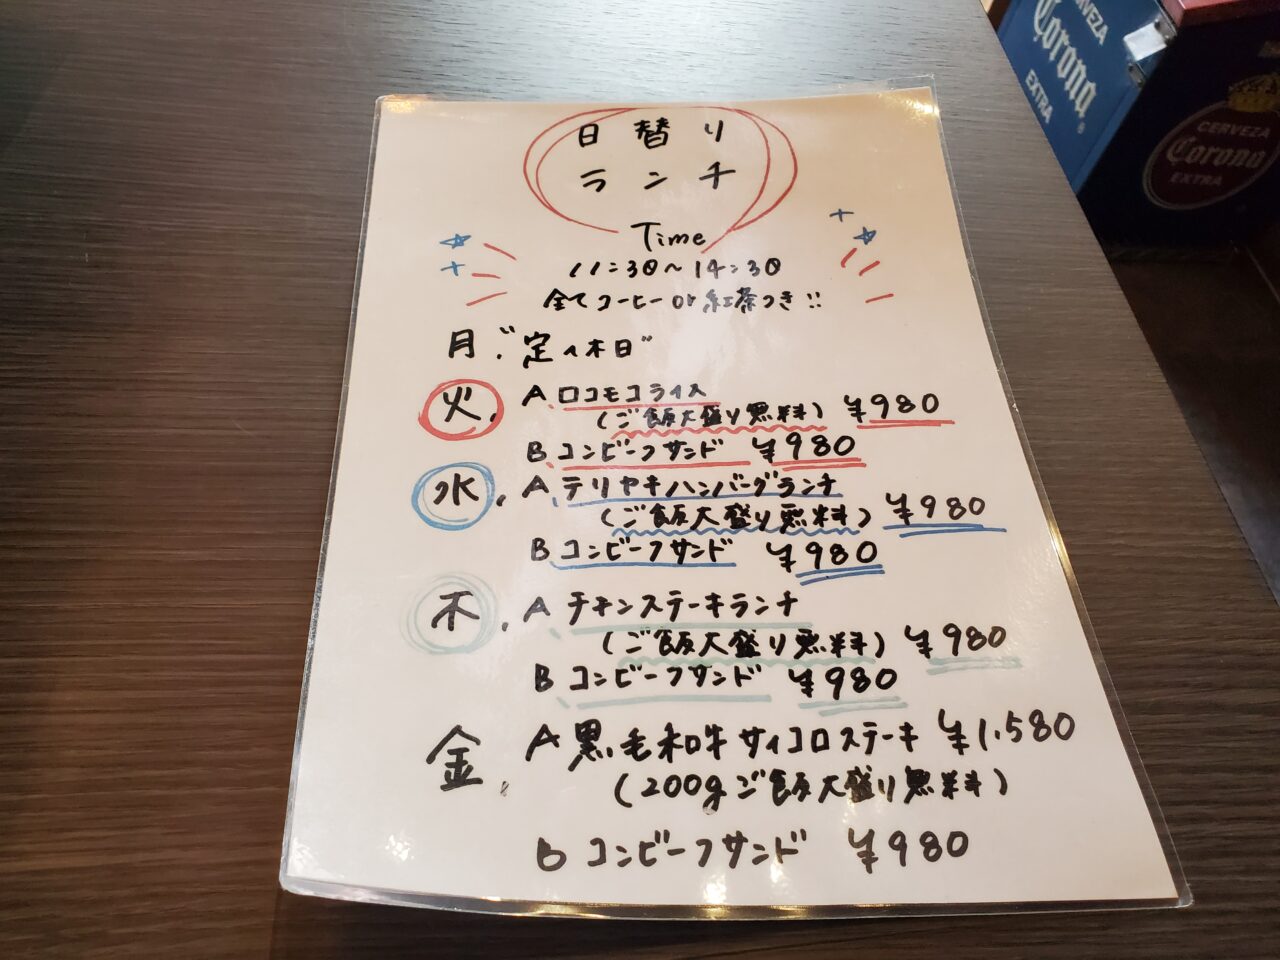 日替り
ランチ
Time
11:30~14:30
全てコーヒーor紅茶つき!!
月."定休日"
火. A ロコモコライス
(ご飯大盛り無料) ¥980
B コンビーフサンド ¥980
水. A テリヤキハンバーグランチ
(ご飯大盛り無料) ¥980
B コンビーフサンド ¥980
木. A チキンステーキランチ
(ご飯大盛り無料) ¥980
B コンビーフサンド ¥980
金. A 黒毛和牛サイコロステーキ ¥1.580
(200gご飯大盛り無料)
B コンビーフサンド ¥980
CERVEZA
Corona
EXTRA
CERVEZA
Corona
EXTRA